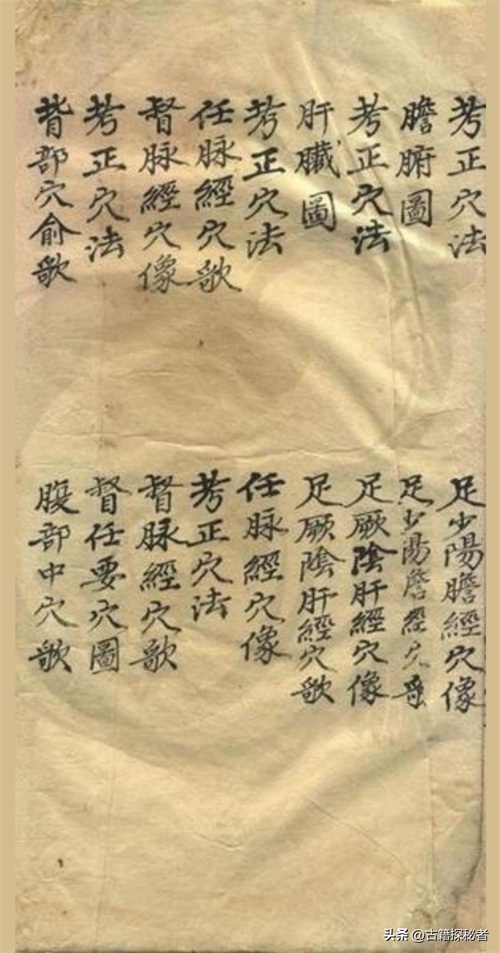 考正穴法
足少陽膽經穴像
膽腑圖
足少陽膽經穴歌
考正穴法
足厥陰肝經穴像
肝臟圖
足厥陰肝經穴歌
考正穴法
任脉經穴像
任脉經穴歌
考正穴法
督脉經穴像
督脉經穴歌
考正穴法
督任要穴圖
背部穴俞歌
腹部中穴歌
头条 @古籍探秘者